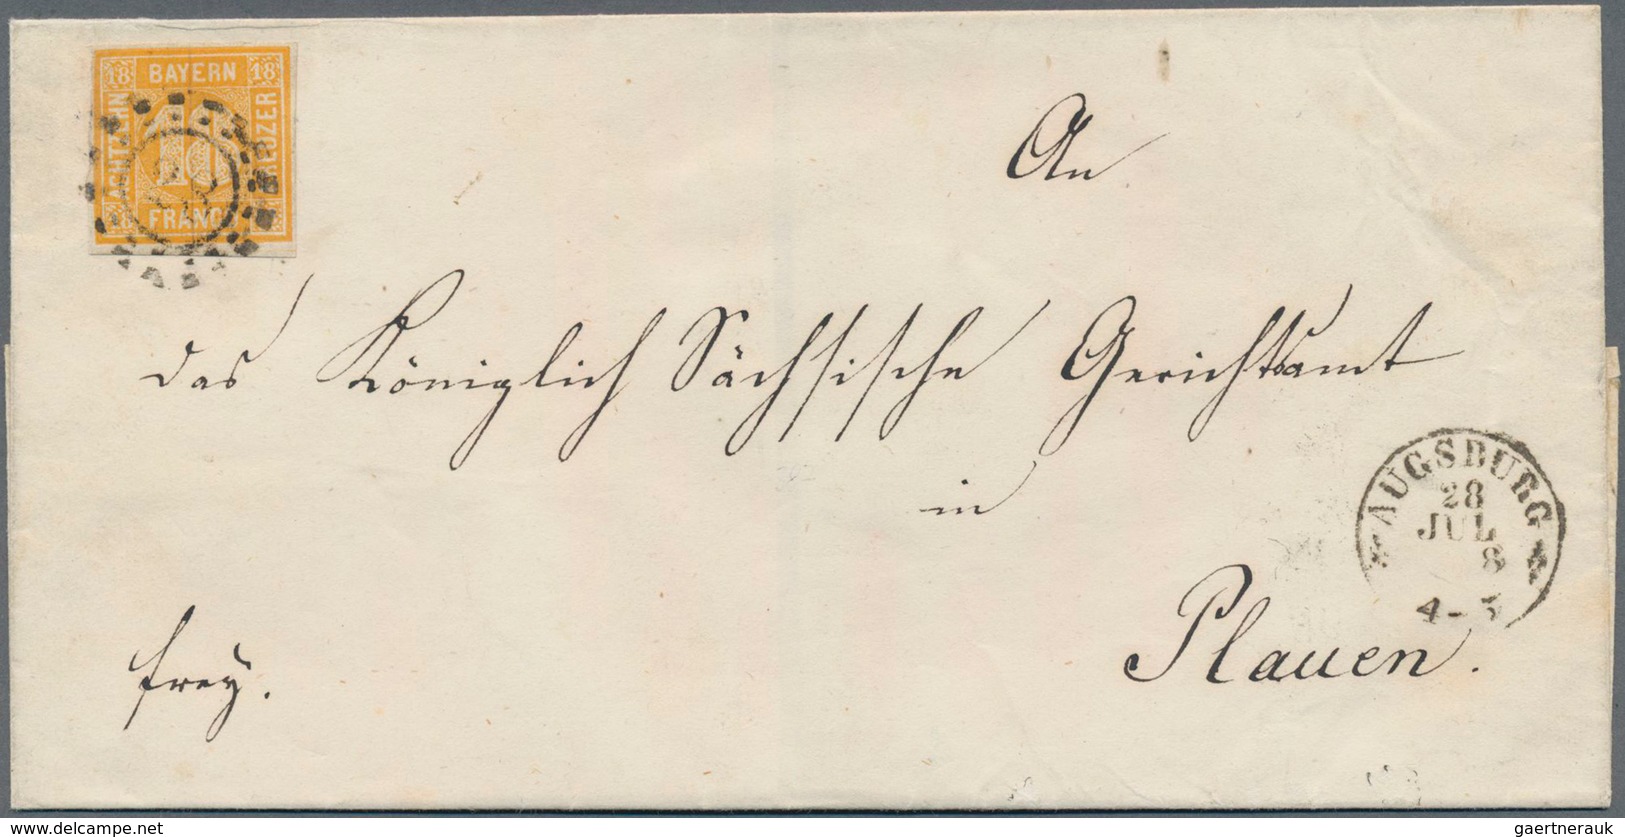 18 BAYERN 18
ACHTZEHN
18
KREUZER
18 FRANCO
28
An
das Königlich Sächsische Gerichtsamt
in
Plauen.
frey.
AUGSBURG
28
JUL
8
4-5
delcampe.net
gaertnerauk